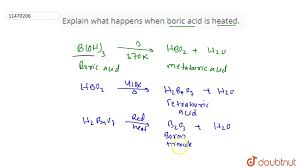 11470206
Explain what happens when boric acid is heated.
B(OH)3 Δ 370K → HBO2 + H2O
Boric acid metaboric acid
HBO2 410K Δ → H2B4O7 + H2O
Tetraboric acid
H2B4O7 Red heat → B2O3 + H2O
Boron trioxide
doubtnut